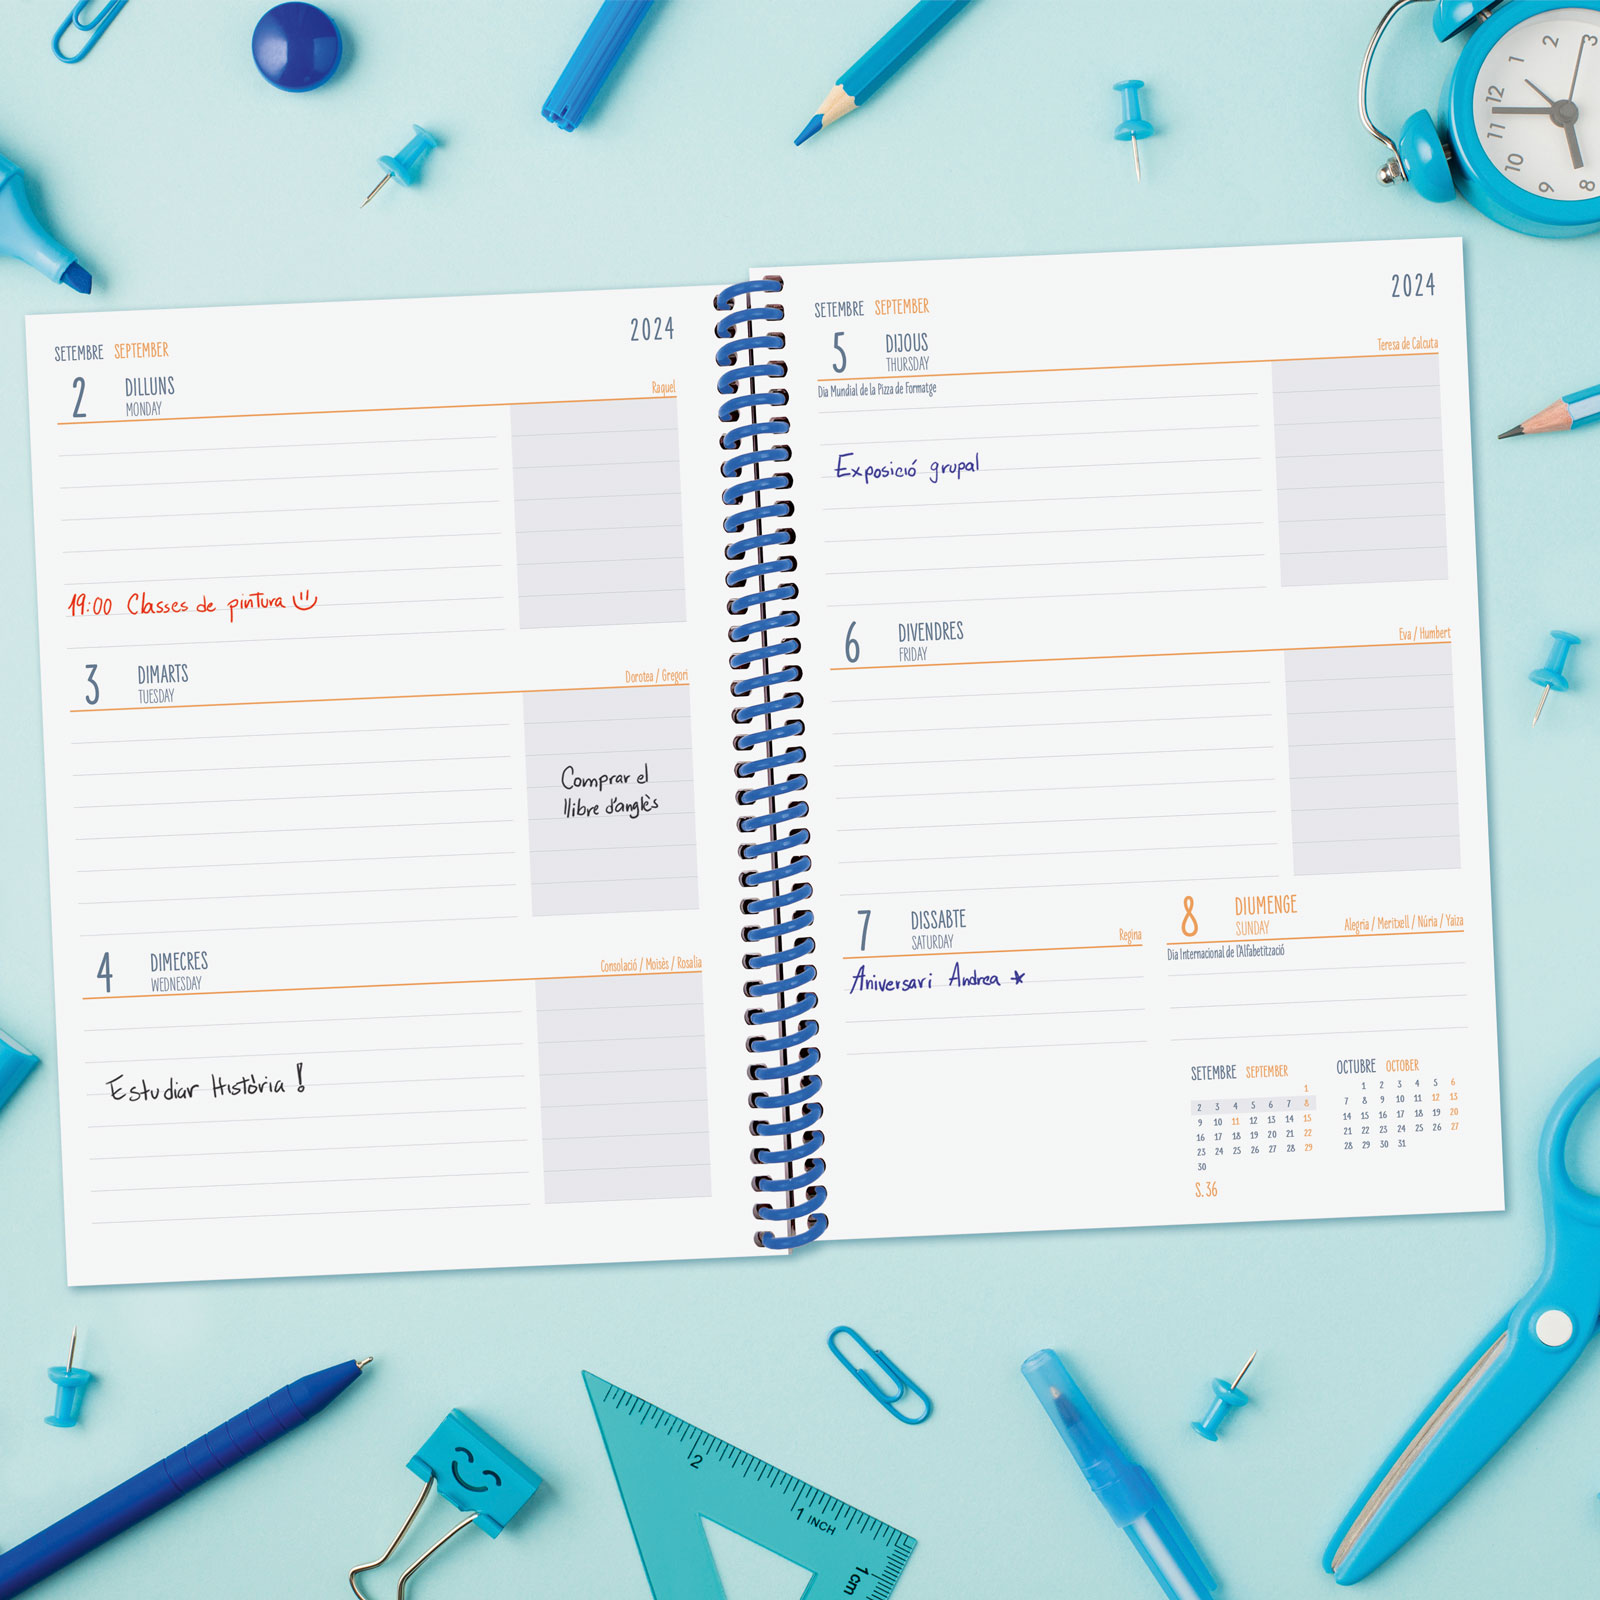 SETEMBRE SEPTEMBER
2024
2 DILLUNS
MONDAY
Raquel
19:00 Classes de pintura
3 DIMARTS
TUESDAY
Dorotea / Gregori
Comprar el
llibre d'anglès
4 DIMECRES
WEDNESDAY
Consolació / Moisès / Rosalia
Estudiar Història!
SETEMBRE SEPTEMBER
2024
5 DIJOUS
THURSDAY
Teresa de Calcuta
Dia Mundial de la Pizza de Formatge
Exposició grupal
6 DIVENDRES
FRIDAY
Eva / Humbert
7 DISSABTE
SATURDAY
Regina
Aniversari Andrea *
8 DIUMENGE
SUNDAY
Alegria / Meritxell / Núria / Yaiza
Dia Internacional de l'Alfabetització
SETEMBRE SEPTEMBER
1
2 3 4 5 6 7 8
9 10 11 12 13 14 15
16 17 18 19 20 21 22
23 24 25 26 27 28 29
30
S. 36
OCTUBRE OCTOBER
1 2 3 4 5 6
7 8 9 10 11 12 13
14 15 16 17 18 19 20
21 22 23 24 25 26 27
28 29 30 31
12 1 2 3
11 10 9 8
2
1 INCH
1 cm